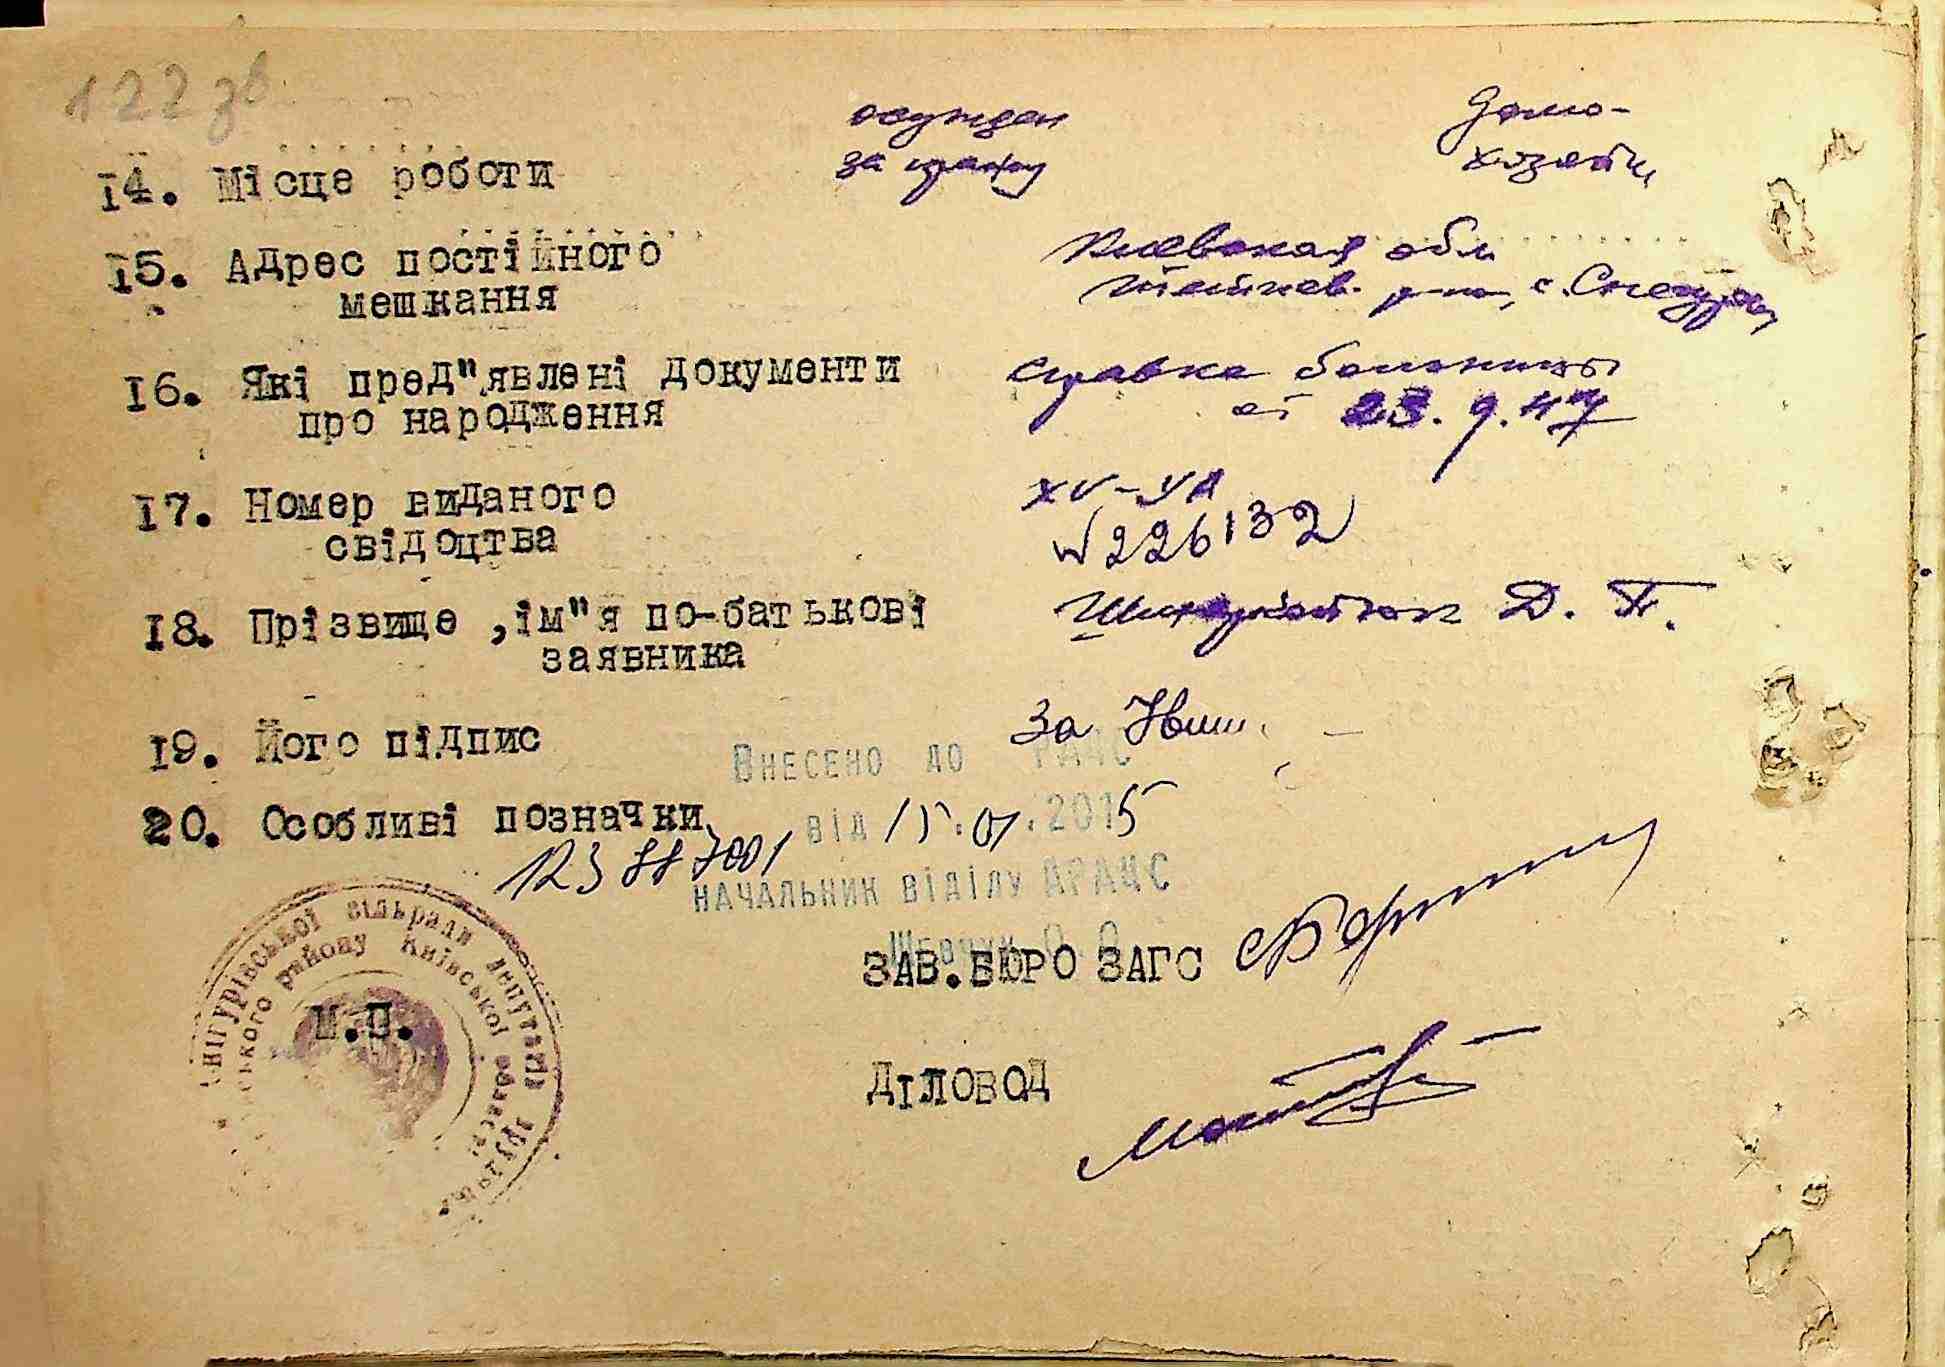 122 зв
осужден домо-
за кражу хозяйк.
14. Місце роботи
15. Адрес постійного Киевская обл
мешкання р-на, с.
16. Які пред"явлені документи справка больницы
про народження от 23.9.47
17. Номер виданого XV-УА
свідоцтва N 226132
18. Прізвище ,ім"я по-батькові Д. П.
заявника
19. Його підпис За
Внесено до РАЦС
20. Особливі позначки від 15.01.2015
начальник відділу ДРАЦС
Шевчук О.О.
ЗАВ.БЮРО ЗАГС
М.П.
ДІЛОВОД
нігурівської сільради депутатів трудящих
ського району Київської області